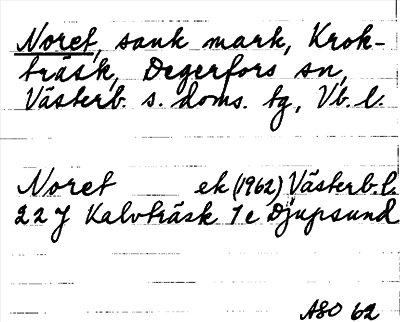 Noret, sank mark, Krok-
träsk, Degerfors sn,
Västerb. s. doms. tg, Vb. l.
Noret ek (1962) Västerb. l.
22 J Kalvträsk 1 e Djupsund
ASO 62